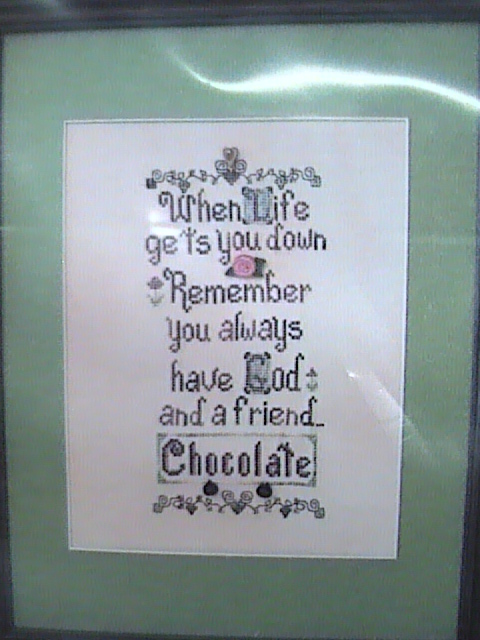 When Life
gets you down
Remember
you always
have God
and a friend...
Chocolate